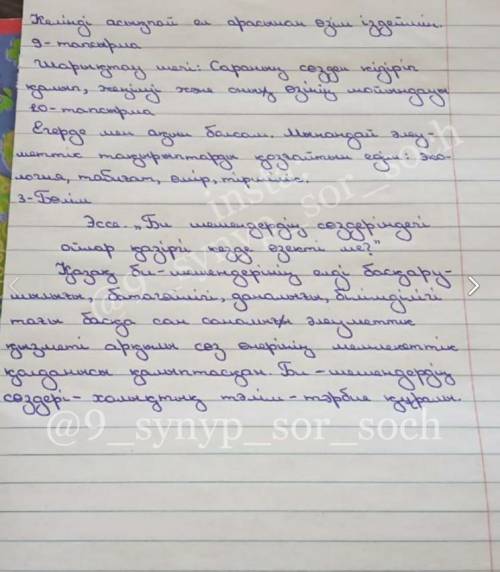 Келінді асықпай ел арасынан өзім іздеймін.
9-тапсырма
Шарықтау шегі: Сараның сөзден кідіріп
қалып, жеңілуі және оның өзінің мойындауы
10-тапсырма
Егерде мен ақын болсам. Мынандай әлеу-
меттік тақырыптарды қозғайтын едім: Эко-
логия, табиғат, өмір, тіршілік.
3-Бөлім
Эссе. „Би шешендердің сөздеріндегі
ойлар қазіргі кезде өзекті ме?"
Қазақ би-шешендерінің елді басқару-
шылығы, батагөйлігі, даналығы, білімділігі
тағы басқа сан салалы әлеуметтік
қызметі арқылы сөз өнерінің мемлекеттік
қолданысы қалыптасқан. Би-шешендердің
сөздері - халықтық тәлім-тәрбие құралы.
insta:
@9_synyp_sor_soch
@9_synyp_sor_soch